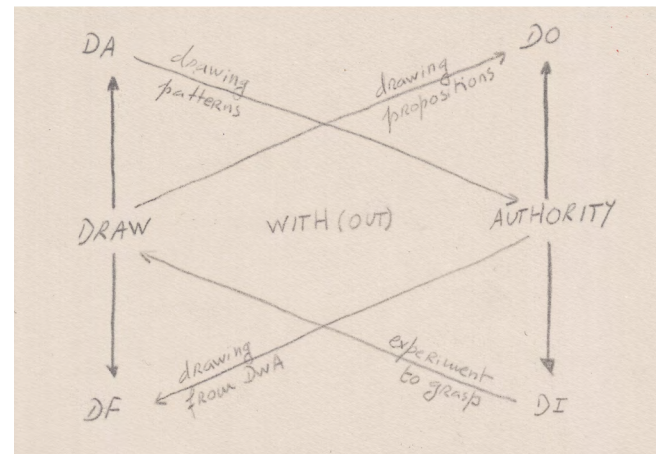 DA
DO
drawing
patterns
drawing
propositions
DRAW
WITH (OUT)
AUTHORITY
drawing
from DWA
experiment
to grasp
DF
DI